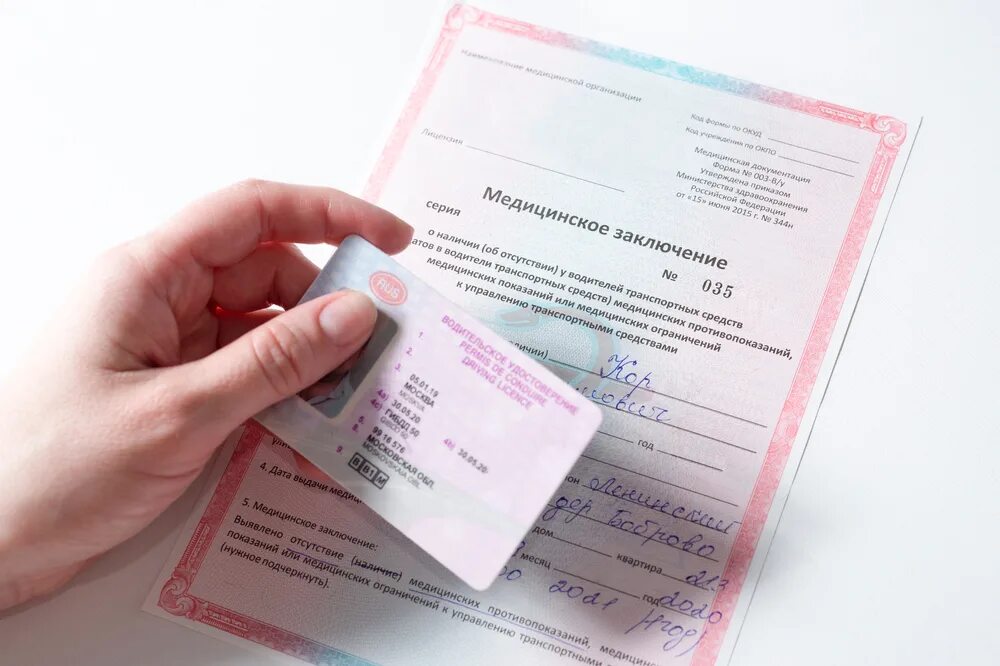 Наименование медицинской организации
Код формы по ОКУД
Код учреждения по ОКПО
Медицинская документация
Форма № 003-В/у
Утверждена приказом
Министерства здравоохранения
Российской Федерации
от «15» июня 2015 г. № 344н
Лицензия
Медицинское заключение
серия
№ 035
о наличии (об отсутствии) у водителей транспортных средств
датов в водители транспортных средств) медицинских противопоказаний,
медицинских показаний или медицинских ограничений
к управлению транспортными средствами
Кор
год
Ленинский
дер Боброво
дом
квартира 213
4. Дата выдачи
месяц
год 2020
2021
5. Медицинское заключение:
Выявлено отсутствие (наличие) медицинских противопоказаний, медицин
показаний или медицинских ограничений к управлению транспортными
(нужное подчеркнуть).
RUS
ВОДИТЕЛЬСКОЕ УДОСТОВЕРЕНИЕ
PERMIS DE CONDUIRE
DRIVING LICENCE
1.
2.
3.
05.01.19
МОСКВА
MOSKVA
4a) 30.05.20
4b) 30.05.20
4c) ГИБДД 50
GIBDD 50
5. 99 16 576
8. МОСКОВСКАЯ ОБЛ.
MOSKOVSKAIA OBL.
9. B B1 M